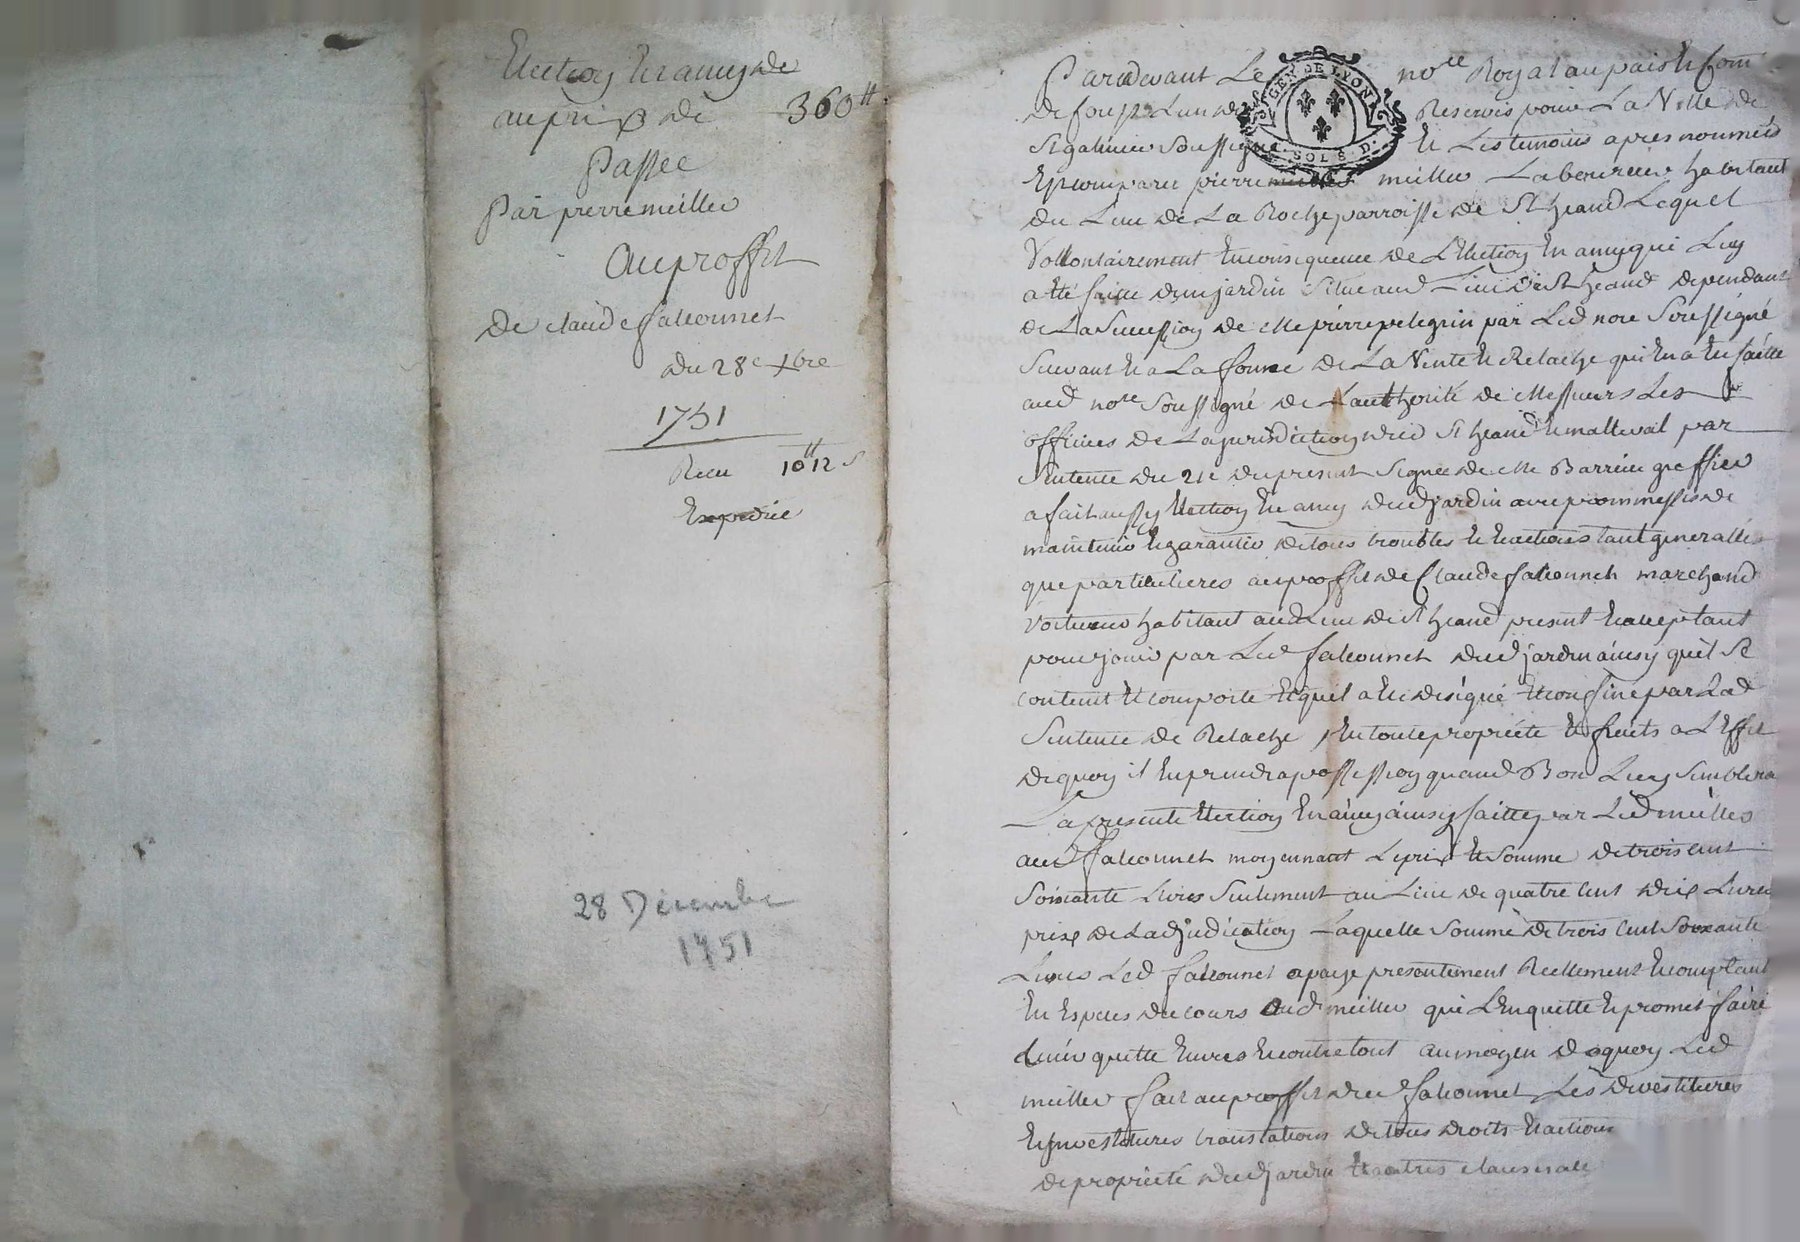 Election En amy de
au prix de 360 ₶
Passée
Par pierre meiller
Au proffit
De claude falconnet
Du 28e xbre
1751
Receu 10₶ 12 s
Expediée
28 Décembre
1751
GEN DE LYON
SOLS D.
Pardevant Le nore Royal au pais & Com
de forest L'un des Reservés pour La Ville de
St galmier Soussigné & Les temoins apres nommés
Est comparu pierre meiller Laboureur habitant
du Lieu de La Roche parroisse de St heand Lequel
Vollontairement En consequence de L'Election En amy qui Luy
a Eté faitte d'un jardin Situé aud Lieu de St heand dependant
de La Succession de Me pierre pelegrin par Led nore Soussigné
Suivant Et a La forme de La Vente & Relache qui En a Eté faitte
aud nore Soussigné de L'authorité de Messieurs Les
officiers de La jurisdiction dud St heand & malleval par
Sentence du 21e du present Signée de Me Barrieu greffier
a fait aussy Election En amy dud jardin avec promesses de
maintenir & garantir de tous troubles & Evictions tant generalles
que particulieres au proffit de Claude falconnet marchand
Voiturier habitant aud Lieu de St heand present & acceptant
pour jouir par Led falconnet dud jardin ainsy qu'il Se
contient & comporte & qu'il a Eté designé & confiné par Lad
Sentence de Relache En toute propriété & fruits a L'Effet
de quoy il En prendra possession quand Bon Luy Semblera
La presente Election En amy ainsy faitte par Led meiller
aud falconnet moyennant Le prix & Somme de trois cent
Soixante Livres Seulement au Lieu de quatre cent dix Livres
prix de Ladjudication Laquelle Somme de trois cent Soixante
Livres Led falconnet a payé presentement Reellement & comptant
En Especes du cours aud meiller qui L'En quitte & promet faire
tenir quitte Envers & contre tous au moyen de quoy Led
meiller fait au proffit dud falconnet Les devestitures
& Investitures translations de tous droits & actions
de propriété dud jardin & autres clauses